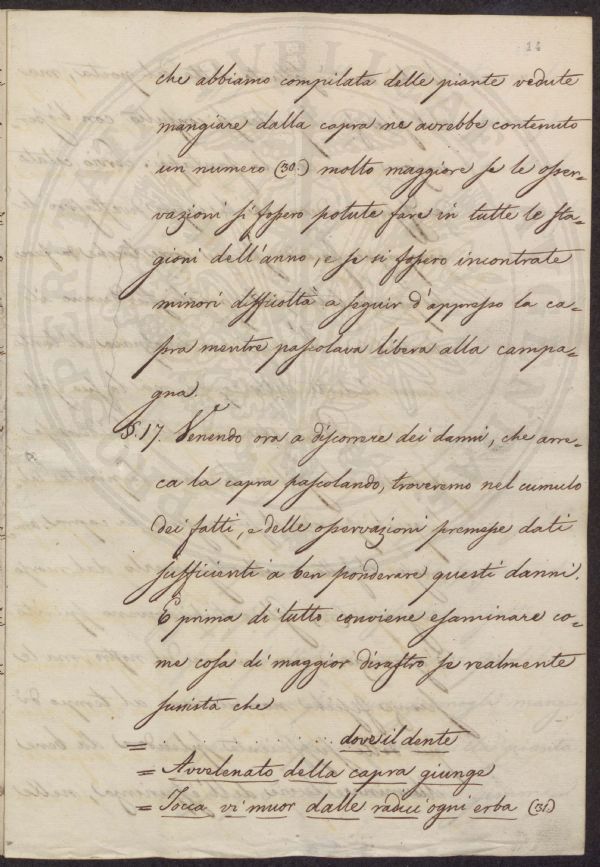 14
che abbiamo compilata delle piante vedute
mangiare dalla capra ne avrebbe contenuto
un numero (30.) molto maggiore se le osser-
vazioni si fossero potute fare in tutte le sta-
gioni dell'anno, e se si fossero incontrate
minori difficoltà a seguir d'appresso la ca-
pra mentre pascolava libera alla campa-
gna.
§. 17. Venendo ora a discorrere dei danni, che arre-
ca la capra pascolando, troveremo nel cumulo
dei fatti, e delle osservazioni premesse dati
sufficienti a ben ponderare questi danni.
E prima di tutto conviene esaminare co-
me cosa di maggior disastro se realmente
sussista che
= . . . . . . . . . . . . dove il dente
= Avvelenato della capra giunge
= Tocca vi muor dalle radici ogni erba (31.)